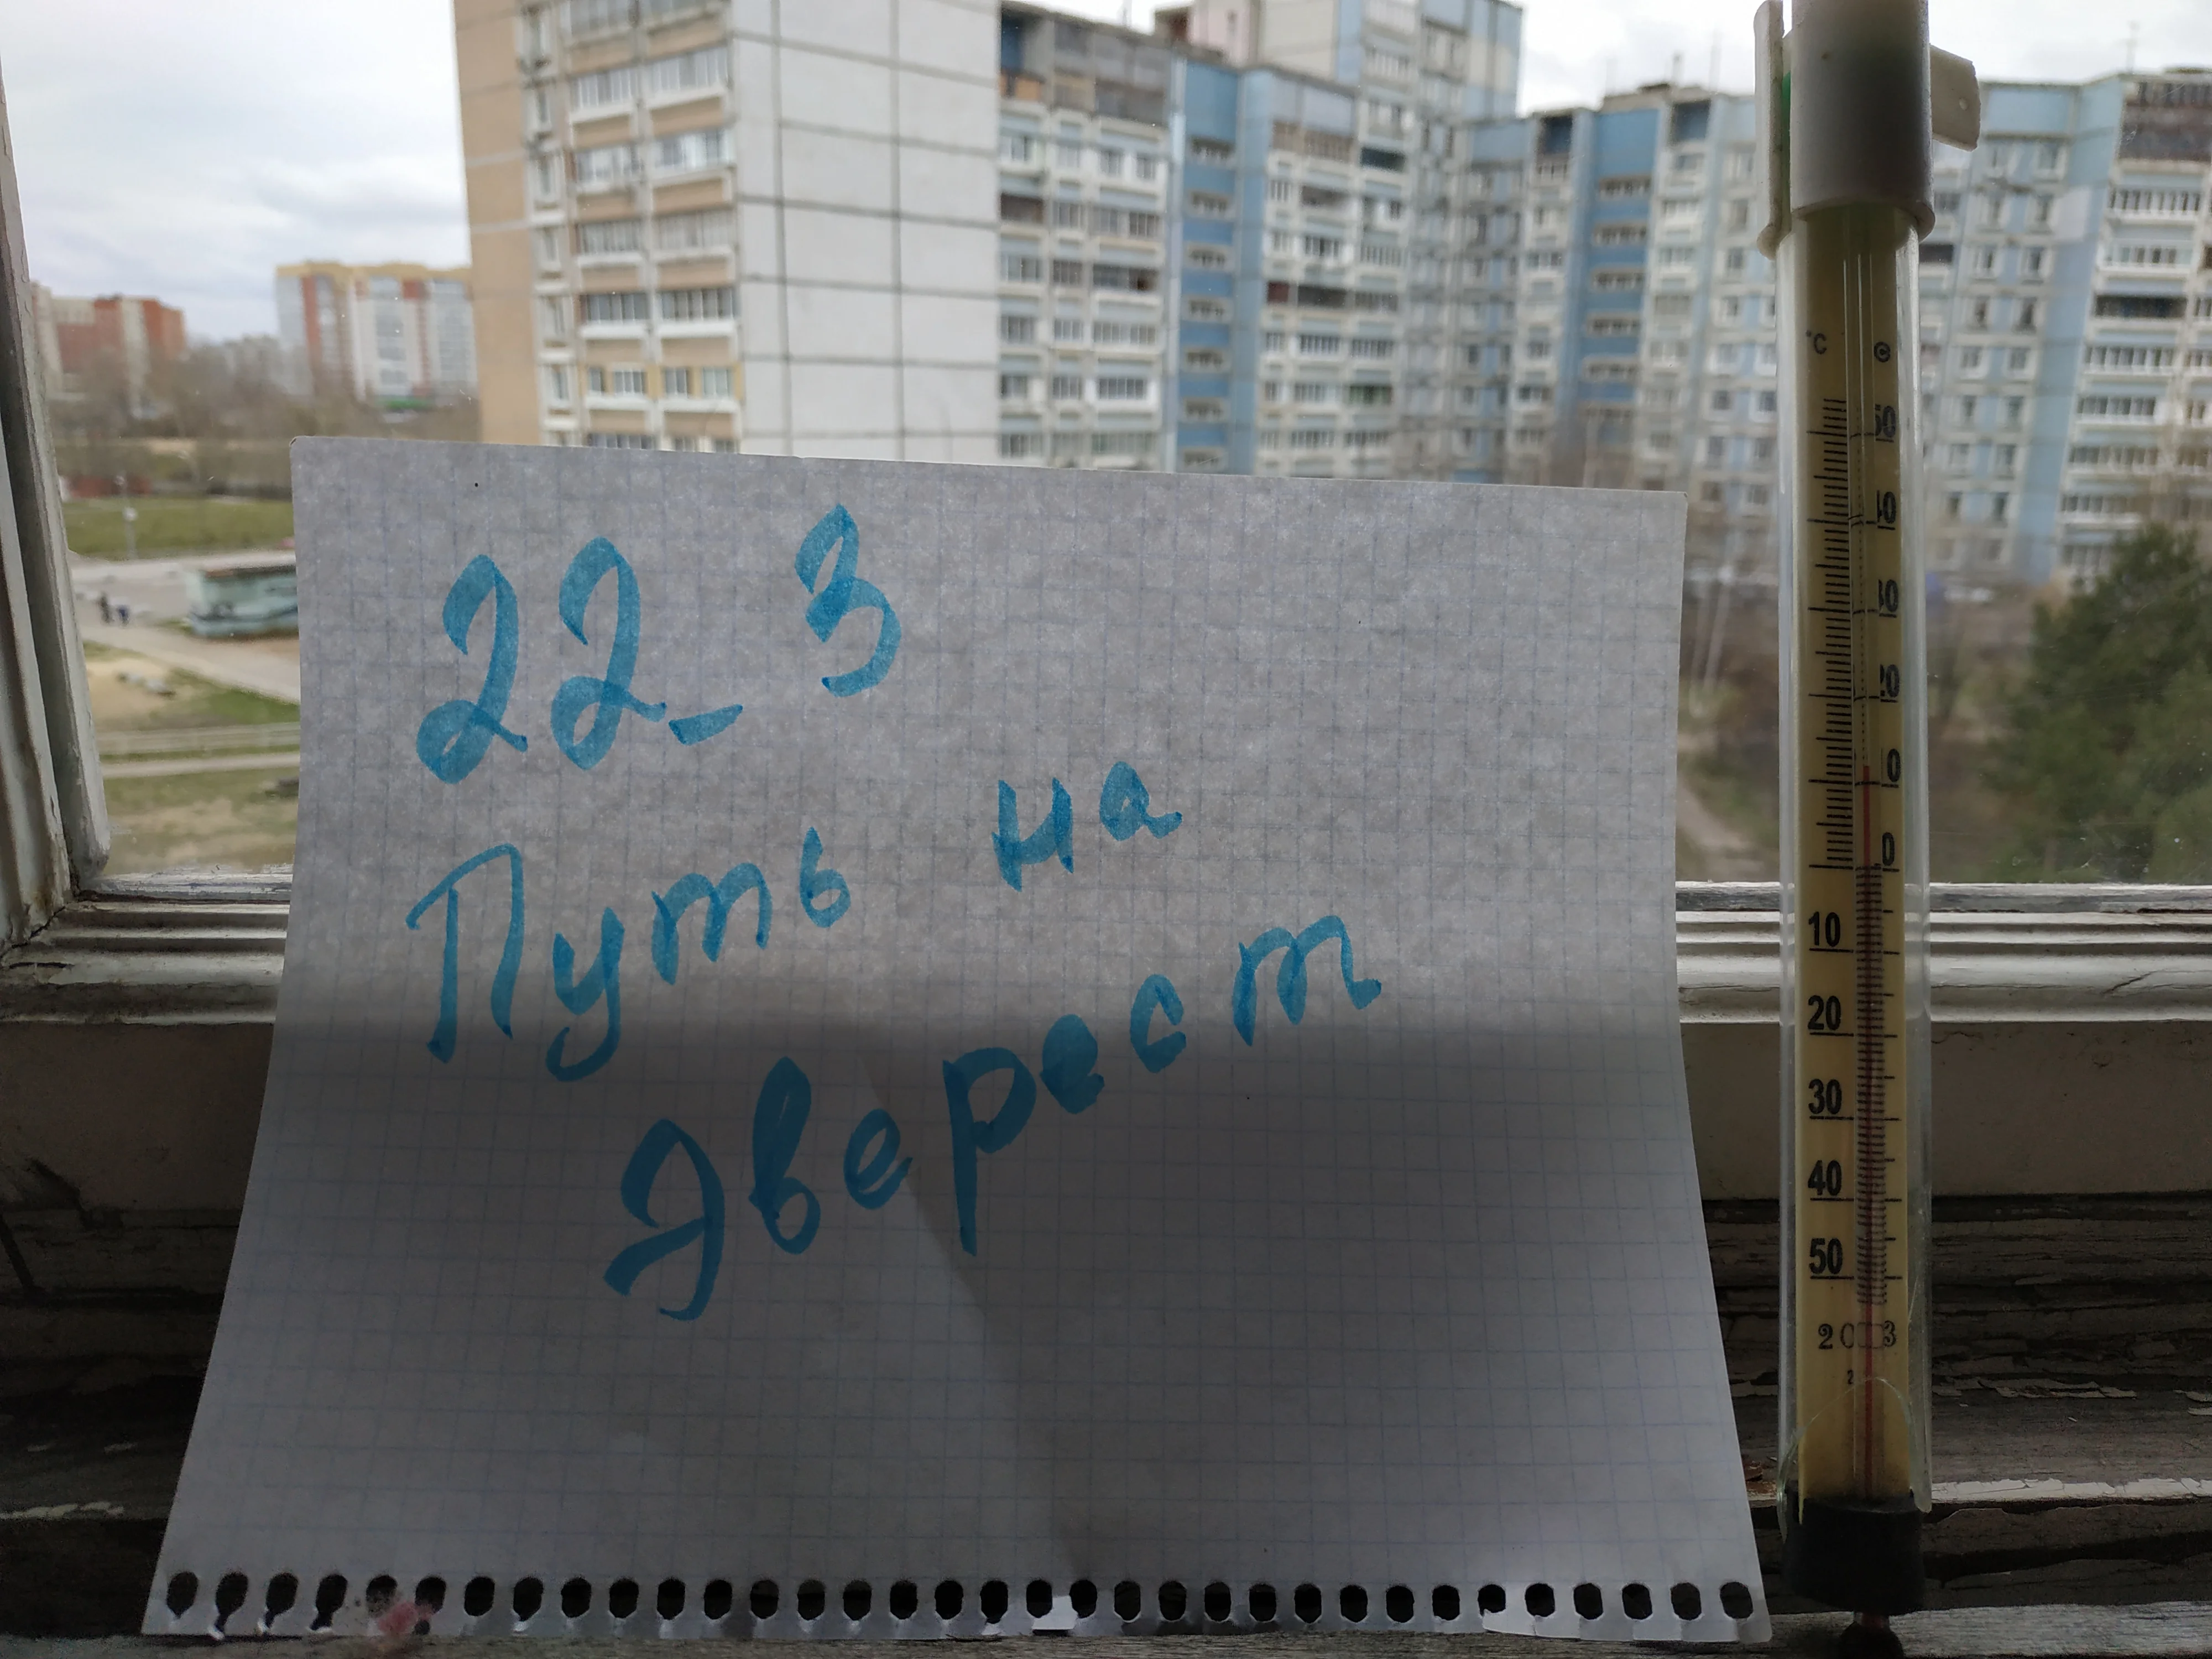 22_3
Путь на
Эверест
°C
50
40
30
20
10
0
10
20
30
40
50